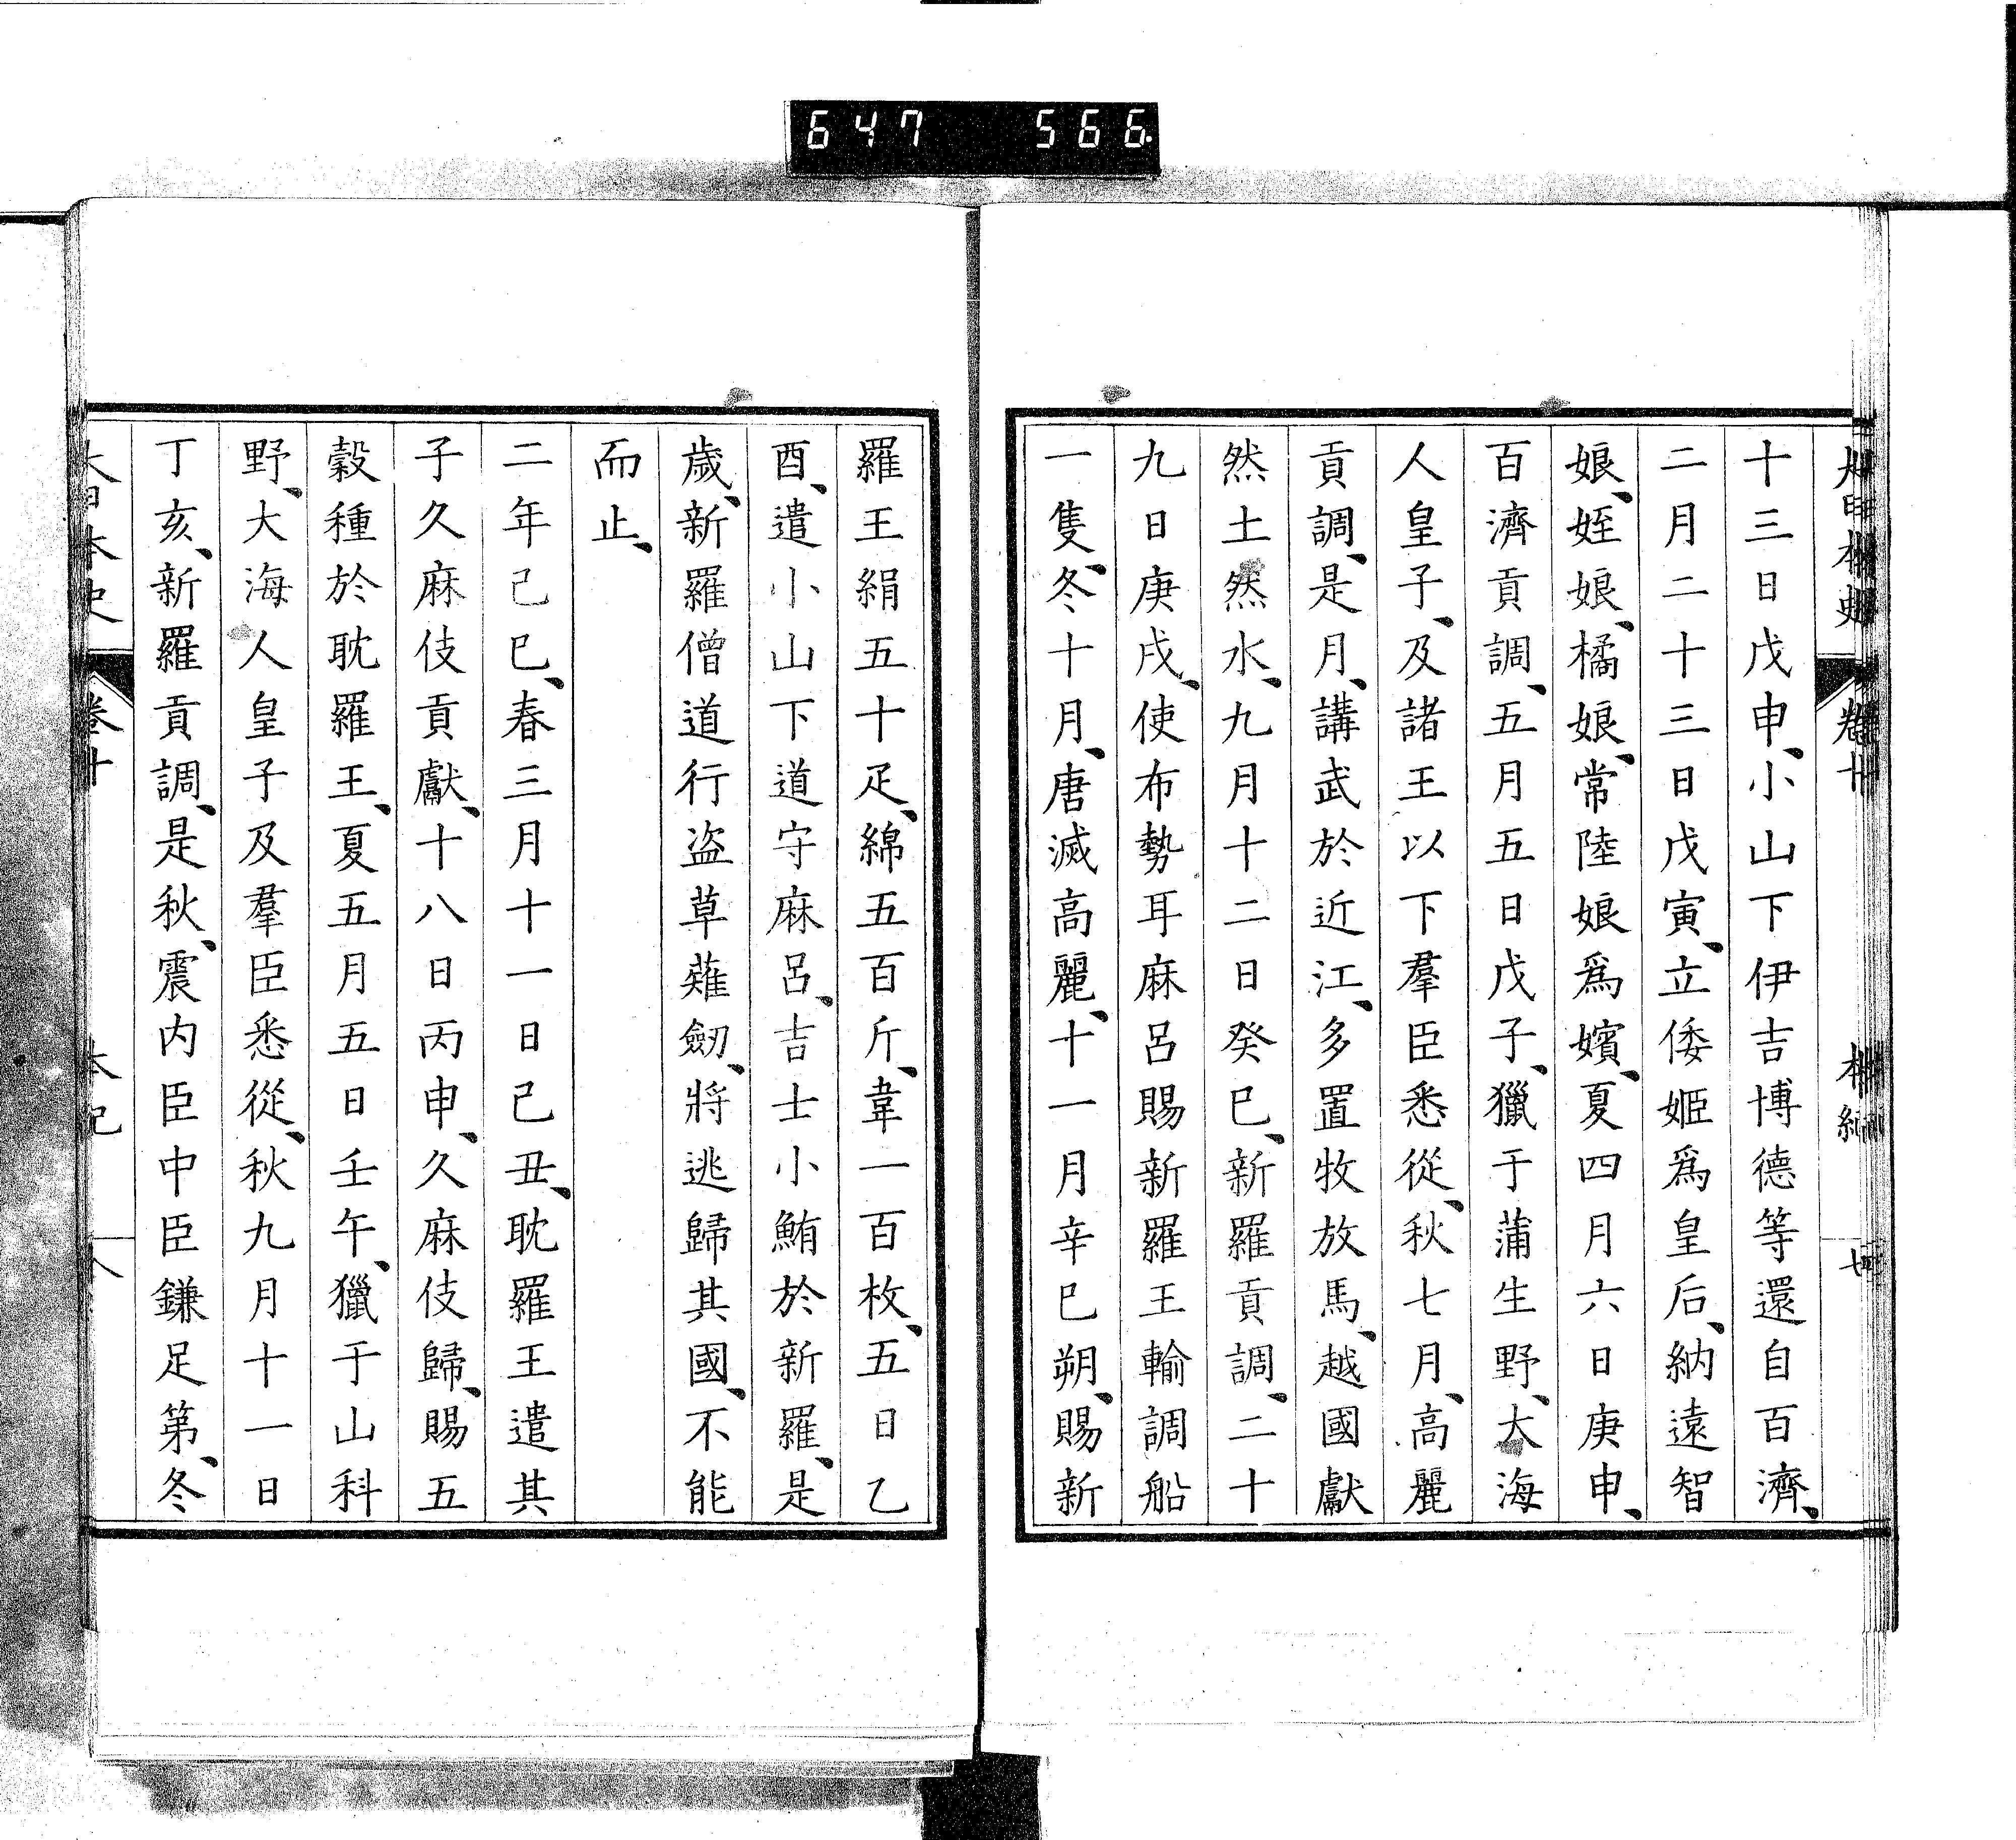 647 566
大日本史 卷十 本紀 七
十三日戊申、小山下伊吉博德等還自百濟、
二月二十三日戊寅、立倭姬爲皇后、納遠智
娘、姪娘、橘娘、常陸娘爲嬪、夏四月六日庚申、
百濟貢調、五月五日戊子、獵于蒲生野、大海
人皇子、及諸王以下羣臣悉從、秋七月、高麗
貢調、是月、講武於近江、多置牧放馬、越國獻
然土然水、九月十二日癸巳、新羅貢調、二十
九日庚戌、使布勢耳麻呂賜新羅王輸調船
一隻、冬十月、唐滅高麗、十一月辛巳朔、賜新
羅王絹五十疋、綿五百斤、韋一百枚、五日乙
酉、遣小山下道守麻呂、吉士小鮪於新羅、是
歲、新羅僧道行盜草薙劒、將逃歸其國、不能
而止、
二年己巳、春三月十一日己丑、耽羅王遣其
子久麻伎貢獻、十八日丙申、久麻伎歸、賜五
穀種於耽羅王、夏五月五日壬午、獵于山科
野、大海人皇子及羣臣悉從、秋九月十一日
丁亥、新羅貢調、是秋、震内臣中臣鎌足第、冬
大日本史 卷十 本紀 八